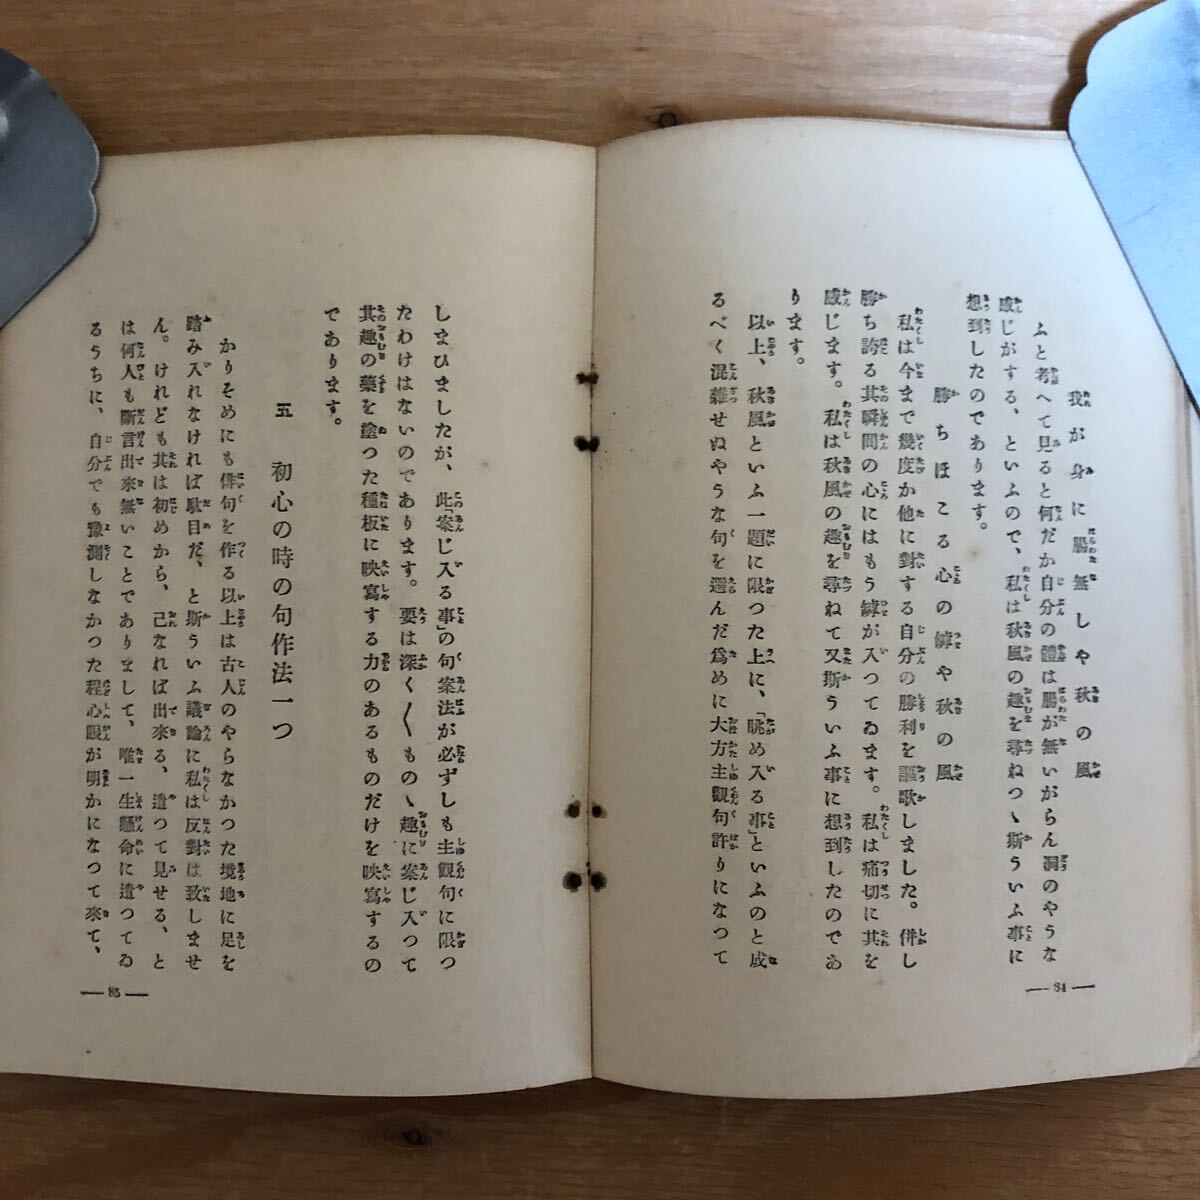 我が身に腸無しや秋の風
ふと考へて見ると何だか自分の體は腸が無いがらん洞のやうな
感じがする、といふので、私は秋風の趣を尋ねつゝ斯ういふ事に
想到したのであります。
勝ちほこる心の罅や秋の風
私は今まで幾度か他に對する自分の勝利を謳歌しました。併し
勝ち誇る其瞬間の心にはもう罅が入つてゐます。私は痛切に其を
感じます。私は秋風の趣を尋ねて又斯ういふ事に想到したのであ
ります。
以上、秋風といふ一題に限つた上に、「眺め入る事」といふのと成
るべく混雜せぬやうな句を選んだ爲めに大方主觀句許りになつて
— 84 —
しまひましたが、此「案じ入る事」の句案法が必ずしも主觀句に限つ
たわけはないのであります。要は深く〳〵ものゝ趣に案じ入つて
其趣の藥を塗つた種板に映寫する力のあるものだけを映寫するの
であります。
五　初心の時の句作法一つ
かりそめにも俳句を作る以上は古人のやらなかつた境地に足を
踏み入れなければ駄目だ、と斯ういふ議論に私は反對は致しませ
ん。けれども其は初めから、己なれば出來る、遣つて見せる、と
は何人も斷言出來無いことでありまして、唯一生懸命に遣つてゐ
るうちに、自分でも豫測しなかつた程心眼が明かになつて來て、
— 85 —